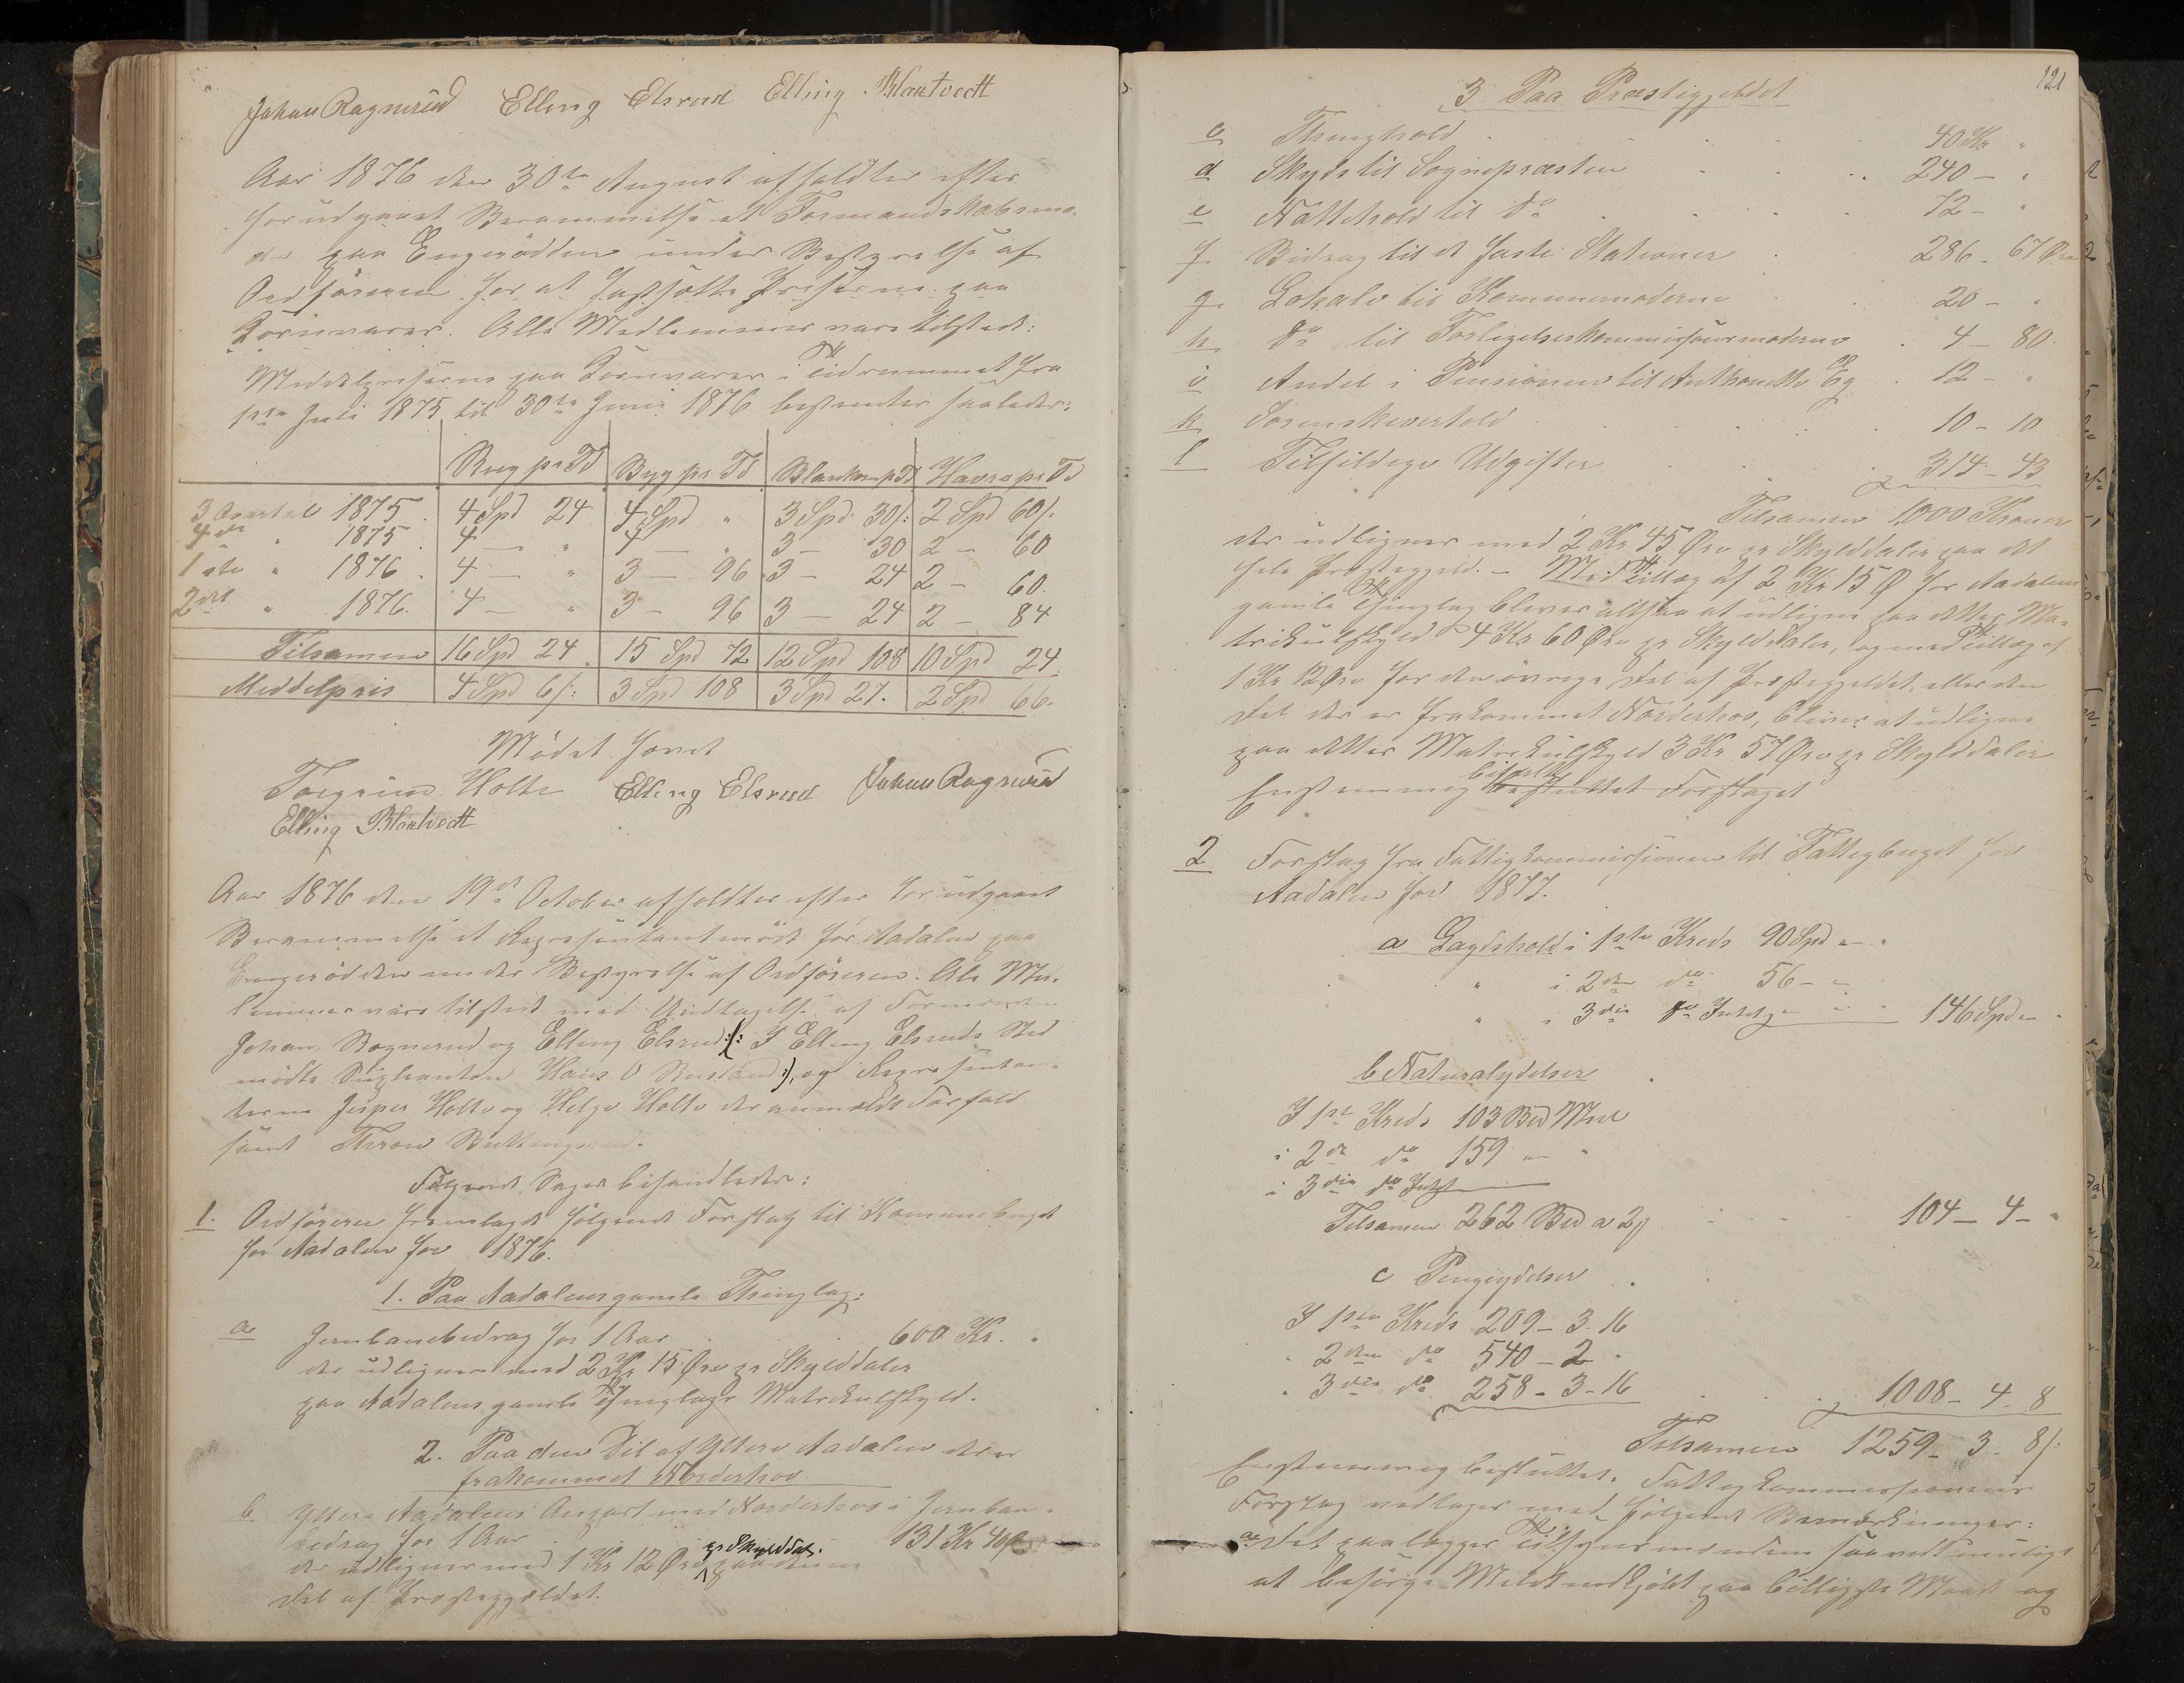 Johan Ragnerud Elling Elsrud Elling Blaktvedt
Aar 1876 den 30te August afholdtes efter
forudgaaet Berammelse et Formandskabsmø-
de paa Engerødden under Bestyrelse af
Ordføreren for at fastsætte Priserne paa
Kornvarer. Alle Medlemmer vare tilstede:
Middelpriserne paa Kornvarer i Tidrummet fra
1ste Juli 1875 til 30te Juni 1876 bestemtes saaledes:
Rug pr Td Byg pr Td Blankorn pr Td Havre pr Td
3 Qvartal 1875. 4 Spd 24 4 Spd " 3 Spd 30/: 2 Spd 60/:
4de " 1875. 4 — " 4 — " 3 — 30 2 — 60
1ste " 1876. 4 — " 3 — 96 3 — 24 2 — 60.
2det " 1876. 4 — " 3 — 96 3 — 24 2 — 84
Tilsamen 16 Spd 24 15 Spd 72 12 Spd 108 10 Spd 24
Middelpris 4 Spd 6/: 3 Spd 108 3 Spd 27. 2 Spd 66.
Mødet hævet
Torgrim Holte Elling Elsrud Johan Ragnerud
Elling Blaktvedt
Aar 1876 den 19de October afholdtes efter forudgaaet
Berammelse et Repræsentantmøde for Aadalen paa
Engerødden under Bestyrelse af Ordføreren. Alle Med-
lemmer vare tilstede med Undtagelse af Formændene
Johan Ragnerud og Elling Elsrud (: I Elling Elsruds Sted
mødte Suppleanten Hans O :), og Repræsentan-
terne Jesper Holte og Helge Holte der anmeldte Forfald
samt Thron
Følgende Sager behandledes:
1. Ordføreren fremlagde følgende Forslag til Kommunebuget
for Aadalen for 1876.
1. Paa Aadalens gamle Thinglag:
a Jernbanebidrag for 1 Aar . . 600 Kr. "
der udlignes med 2 Kr 15 Øre pr Skylddaler
paa Aadalens gamle Thinglags Matrikulskyld.
2. Paa den Del af Ytere Aadalen der er
frakommet Norderhov
b. Ytere Aadalens Anpart med Norderhov i Jernban-
bidrag for 1 Aar . 131 Kr 40 Ø
der udlignes med 1 Kr 12 Øre pr Skylddal. paa denne
Del af Præstegjældet.
121
3 Paa Præstegjældet
c Thinghold . . . 40 Kr "
d Skyds til Sognepræsten . . . 240 — "
e Nattehold til do . . . 72 — "
f Bidrag til de faste Stationer . 286 — 67 Øre
g Lokale til Kommunemøderne . . 20 — "
h do til Forligelseskommissionsmøderne . 4 — 80
i Andel i Pensionen til Anthonette Eg . 12 — "
k Sorenskrivertold . . . 10 — 10
l Tilfeldige Udgifter . . . 314 — 43
Tilsamen 1,000 Kroner
der udlignes med 2 Kr 45 Øre pr Skylddaler paa det
hele Præstegjeld. — Med Tillæg af 2 Kr 15 Ø for Aadalens
gamle Thinglag bliver altsaa at udligne paa dettes Ma-
trikulskyld 4 Kr 60 Øre pr Skylddaler, og med Tillæg af
1 Kr 12 Øre for den øvrige Del af Præstegjeldet, eller den
Del der er frakommet Norderhov, bliver at udligne
paa dettes Matrikulskyld 3 Kr 57 Øre pr Skylddaler
bifaldt
Enstemmig besluttet Forslaget
2 Forslag fra Fattigkommissionen til Fattigbuget for
Aadalen for 1877.
a Lægdshold i 1ste Kreds 90 Spd " — "
" i 2den do 56 — "
" i 3die do Intet " — 146 Spd " — "
b Naturalydelser
I 1ste Kreds 103 Bd Meel
i 2de do 159 " — "
i 3die do Intet
Tilsamen 262 Bd a 2 . . . 104 — 4 — "
c Pengeydelser .
I 1ste Kreds 209 — 3. 16
" 2den do 540 — 2 "
" 3die do 258 — 3 — 16 . . . 1008 — 4. 8
Tilsamen 1259 — 3. 8/:
Enstemmig besluttet. Fattigkommissionens
Forslag vedtages med følgende Bemærkninger:
a Det paalægges Tilsynsmændene saavidt muligt
at besørge Melet indkjøbt paa billigste Maade og